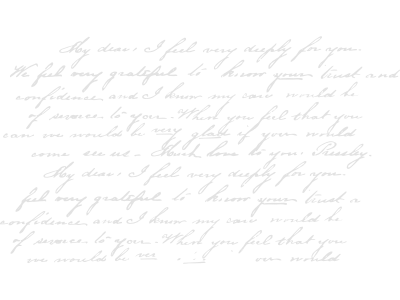 My dear, I feel very deeply for you.
We feel very grateful to know your trust and
confidence and I know my care would be
of service to you. When you feel that you
can we would be very glad if you would
come see us. Much love to you, Pressley.
My dear, I feel very deeply for you.
feel very grateful to know your trust a
confidence and I know my care would be
of service to you. When you feel that you
we would be ver would